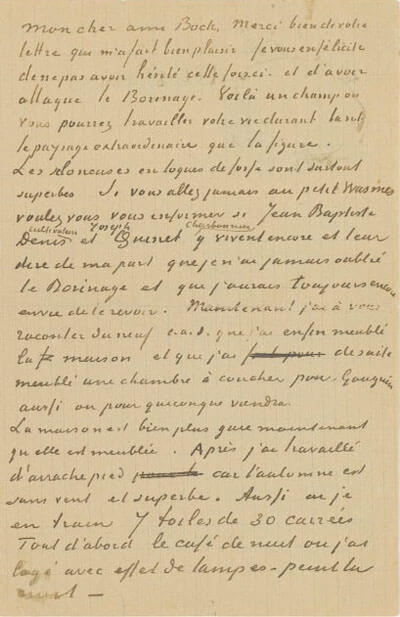 Mon cher ami Boch, Merci bien de votre
lettre qui m'a fait bien plaisir je vous en félicite
de ne pas avoir hésité cette fois ci. et d'avoir
attaqué le Borinage. Voilà un champ où
vous pourrez travailler votre vie durant tant
le paysage extraordinaire que la figure.
Les sloneuses en loques de fosse sont surtout
superbes Si vous allez jamais au petit Wasmes
voulez vous vous informer si Jean Baptiste
cultivateur Joseph charbonnier
Denis et Quinet y vivent encore et leur
dire de ma part que je n'ai jamais oublié
le Borinage et que j'aurais toujours encore
envie de le revoir. Maintenant j'ai à vous
raconter du neuf c.a.d. que j'ai enfin meublé
la maison et que j'ai de suite
meublé une chambre à coucher pour Gauguin
aussi ou pour quiconque viendra.
La maison est bien plus gaie maintenant
qu'elle est meublée. Après j'ai travaillé
d'arrache pied car l'automne est
sans vent et superbe. Aussi ai je
en train 7 toiles de 30 carrées
Tout d'abord le café de nuit où j'ai
logé avec effet de lampes - peint la
nuit —